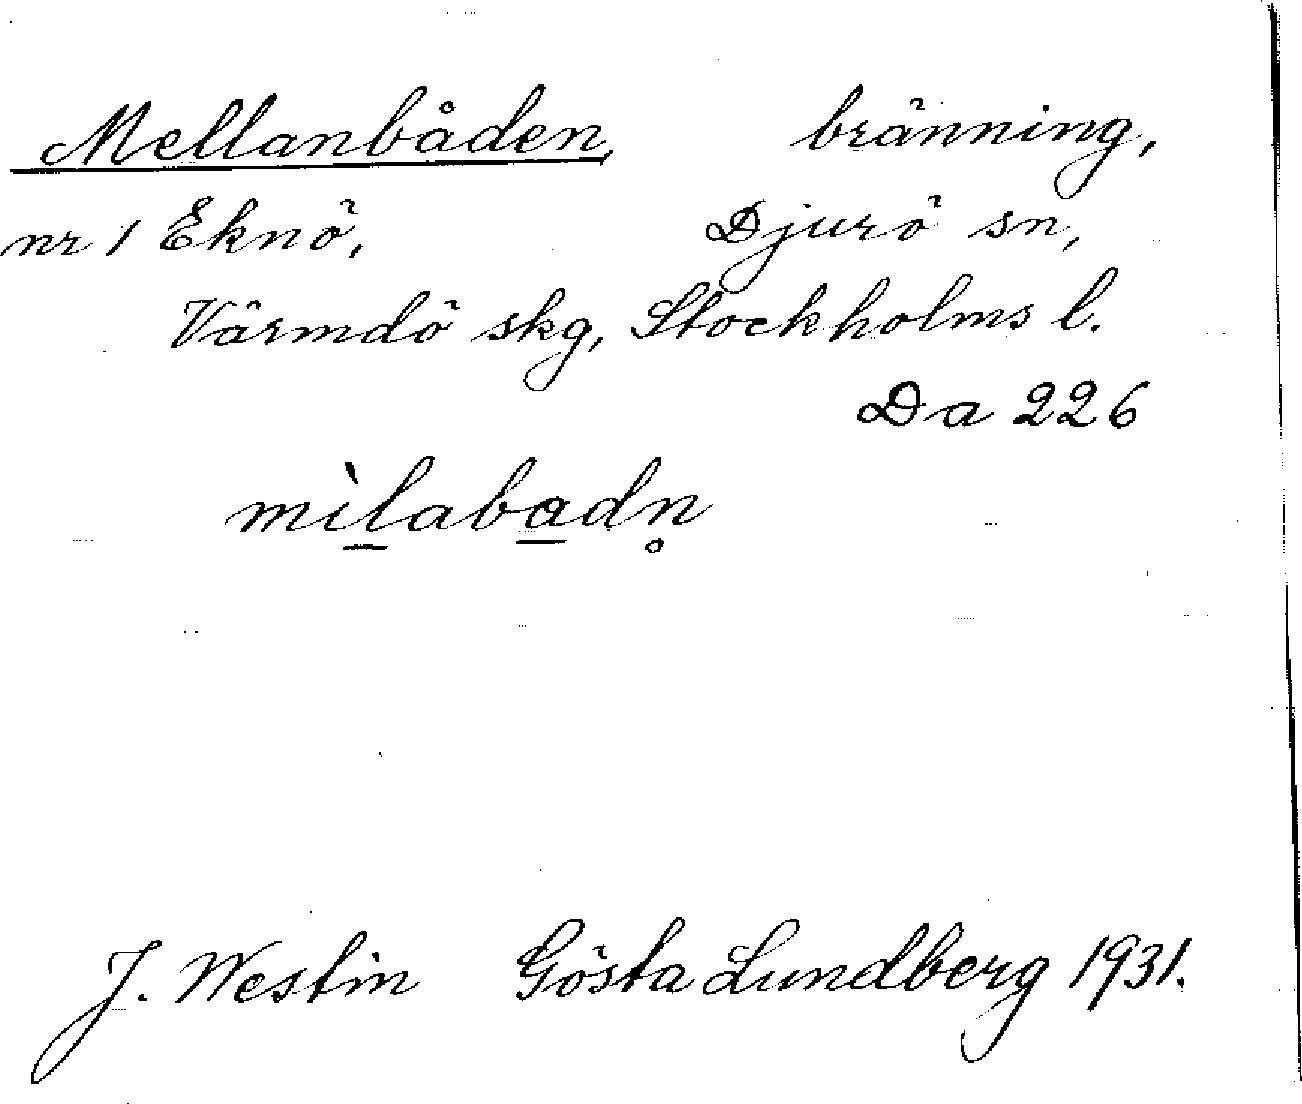 Mellanbåden, bränning,
nr 1 Eknö, Djurö sn,
Värmdö skg, Stockholms l.
Da 226
mìl̲aba̲dn̥
J. Westin Gösta Lundberg 1931.